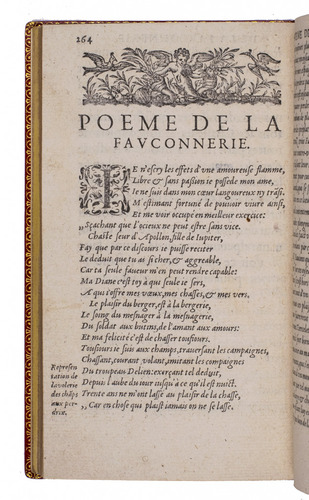 264
POEME DE LA
FAVCONNERIE.
IE n'escry les effets d'vne amoureuse flamme,
Libre & sans pasion ie possede mon ame,
Ie ne suis dans mon cœur langoureux ny trãsi.
M'estimant fortuné de pouuoir viure ainsi,
Et me voir occupé en meilleur exercice:
Sçachant que l'ocieux ne peut estre sans vice.
Chaste seur d'Apollon, fille de Iupiter,
Fay que par ce discours ie puisse reciter
Le deduit que tu as si cher, & aggreable,
Car ta seule faueur m'en peut rendre capable:
Ma Diane c'est toy à qui seule ie sers,
A qui s'offre mes vœux, mes chasses, & mes vers.
Le plaisir du berger, est à la bergerie,
Le soing du mesnager à la mesnagerie,
Du soldat aux butins, de l'amant aux amours:
Et ma felicité c'est de chasser tousiours.
Tousiours ie suis aux champs, trauersant les campaignes,
Chassant, courant, volant, imitant les compaignes
Du troupeau Delien: exerçant tel deduit,
Depuis l'aube du iour iusqu'à ce qu'il est nuict.
Trente ans ne m'ont lassé au plaisir de la chasse,
Car en chose qui plaist iamais on ne se lasse.
Represen
tation de
la volerie
des chãps
aux per-
drix.